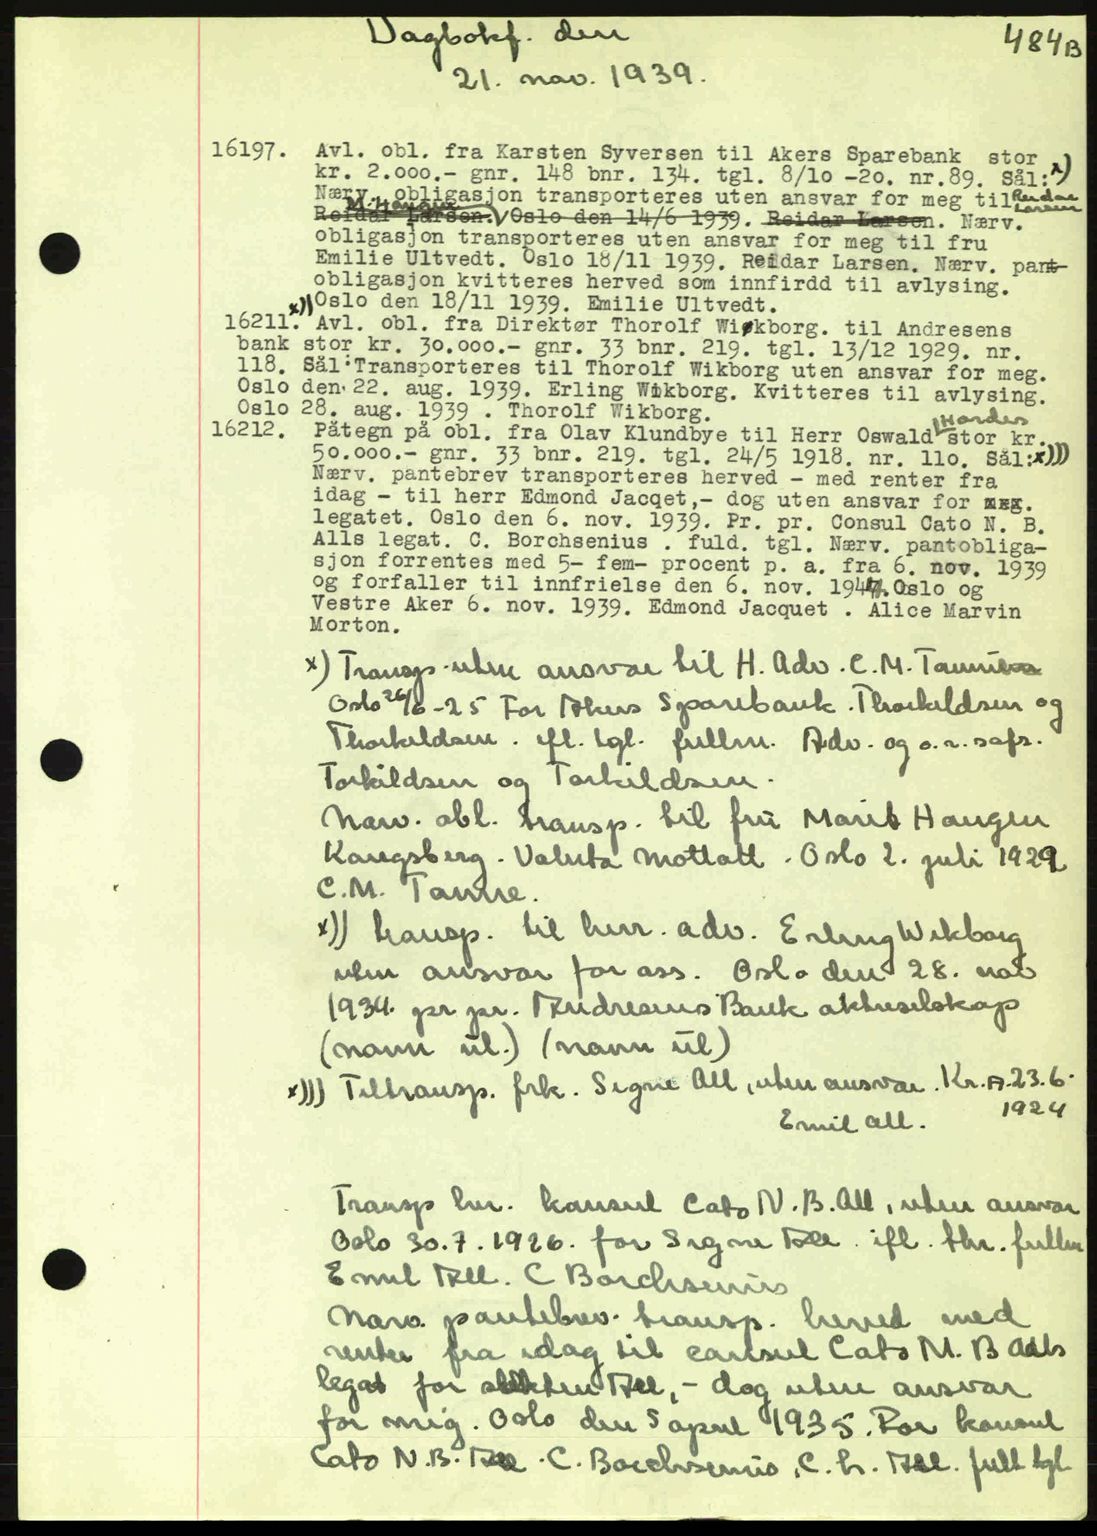 Dagbokf. den
484B
21. nov. 1939.
16197. Avl. obl. fra Karsten Syversen til Akers Sparebank stor
kr. 2.000.- gnr. 148 bnr. 134. tgl. 8/10 -20. nr.89. Sål: x)
Nærv. obligasjon transporteres uten ansvar for meg til Reidar Larsen
M. Haugen
Reidar Larsen. Oslo den 14/6 1939. Reidar Larsen. Nærv.
obligasjon transporteres uten ansvar for meg til fru
Emilie Ultvedt. Oslo 18/11 1939. Reidar Larsen. Nærv. pant-
obligasjon kvitteres herved som innfirdd til avlysing.
x)) Oslo den 18/11 1939. Emilie Ultvedt.
16211. Avl. obl. fra Direktør Thorolf Wikborg. til Andresens
bank stor kr. 30.000.- gnr. 33 bnr. 219. tgl. 13/12 1929. nr.
118. Sål: Transporteres til Thorolf Wikborg uten ansvar for meg.
Oslo den 22. aug. 1939. Erling Wikborg. Kvitteres til avlysing.
Oslo 28. aug. 1939 . Thorolf Wikborg.
16212. Påtegn på obl. fra Olav Klundbye til Herr Oswald Hardes stor kr.
50.000.- gnr. 33 bnr. 219. tgl. 24/5 1918. nr. 110. Sål: x)))
Nærv. pantebrev transporteres herved - med renter fra
idag - til herr Edmond Jacqet,- dog uten ansvar for
legatet. Oslo den 6. nov. 1939. Pr. pr. Consul Cato N. B.
Alls legat. C. Borchsenius . fuld. tgl. Nærv. pantobliga-
sjon forrentes med 5- fem- procent p. a. fra 6. nov. 1939
og forfaller til innfrielse den 6. nov. 1947. Oslo og
Vestre Aker 6. nov. 1939. Edmond Jacquet . Alice Marvin
Morton.
x) Transp. uten ansvar til H. Adv. C. M.
Oslo 26/6 -25 For Akers Sparebank. Thorkildsen og
Thorkildsen . ifl. tgl. fullm. Adv. og o.r.safs.
Torkildsen og Torkildsen.
Nærv. obl. transp. til fru Marit Haugen
Kongsberg. Valuta mottatt. Oslo 2. juli 1929
C.M. Tanne.
x)) transp. til herr. adv. Erling Wikborg
uten ansvar for oss. Oslo den 28. nov
1934. pr pr. Andresens Bank aktieselskap
(navn ul.) (navn ul)
x))) Til transp. frk. Signe All, uten ansvar. Kr.A.23.6.
1924
Emil All.
Transp hr. konsul Cato N.B. All, uten ansvar
Oslo 30.7.1926. for Signe All . ifl. thr. fullm
Emil All. C Borchsenius
Nærv. pantebrev. transp. herved med
renter fra idag til consul Cato N. B Alls
legat for slekten All, - dog uten ansvar
for mig. Oslo den 5 april 1935. For konsul
Cato N.B. All . C. Borchsenius, C. h. All. full tgl.